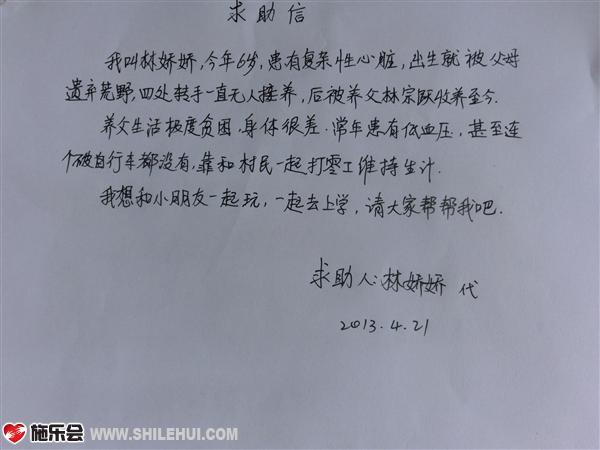 求助信
我叫林娇娇,今年6岁,患有复杂性心脏,出生就被父母
遗弃荒野,四处转手一直无人接养,后被养父林宗跃收养至今.
养父生活极度贫困,身体很差.常年患有低血压,甚至连
个破自行车都没有,靠和村民一起打零工维持生计.
我想和小朋友一起玩,一起去上学,请大家帮帮我吧.
求助人:林娇娇 代
2013.4.21
施乐会 WWW.SHILEHUI.COM